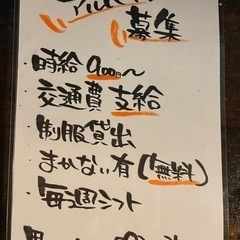 募集
・時給900円～
・交通費支給
・制服貸出
・まかない有(無料)
・毎週シフト